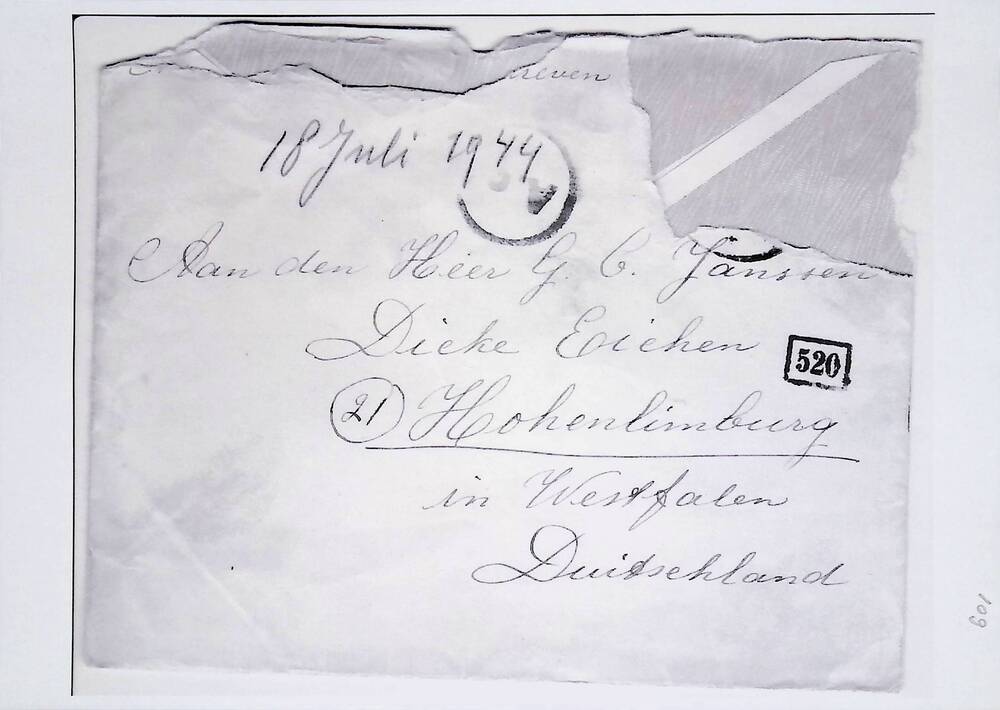 18 Juli 1944
Aan den Heer G. C. Janssen
Dicke Eichen
520
21 Hohenlimburg
in Westfalen
Duitschland
109